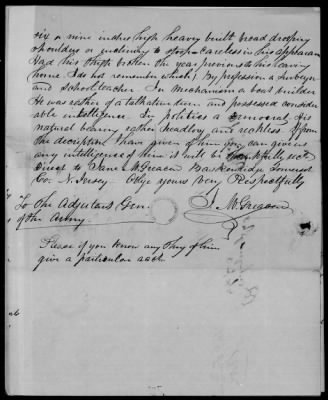 six or nine inches high heavy built broad drooping
shoulders or inclining to stoop - careless in his appearan
Had his thigh broken the year previous to his leaving
home I do not remember which). By profession a surveyor
and school teacher. In Mechanism a boat builder
He was rather of a talkative turn and possessed consider
able intelligence. In politics a Democrat. His
natural bearing rather headlong and reckless. If from
the description I have given of him you can give us
any intelligence of him it will be thankfully recd
Direct to Jane McGregor Baskenridge Somerset
Co. N. Jersey. Oblige yours Very Respectfully
To the Adjutant Gen. J. McGregor
of the Army.
Please if you know anything of him
give a particular acct.